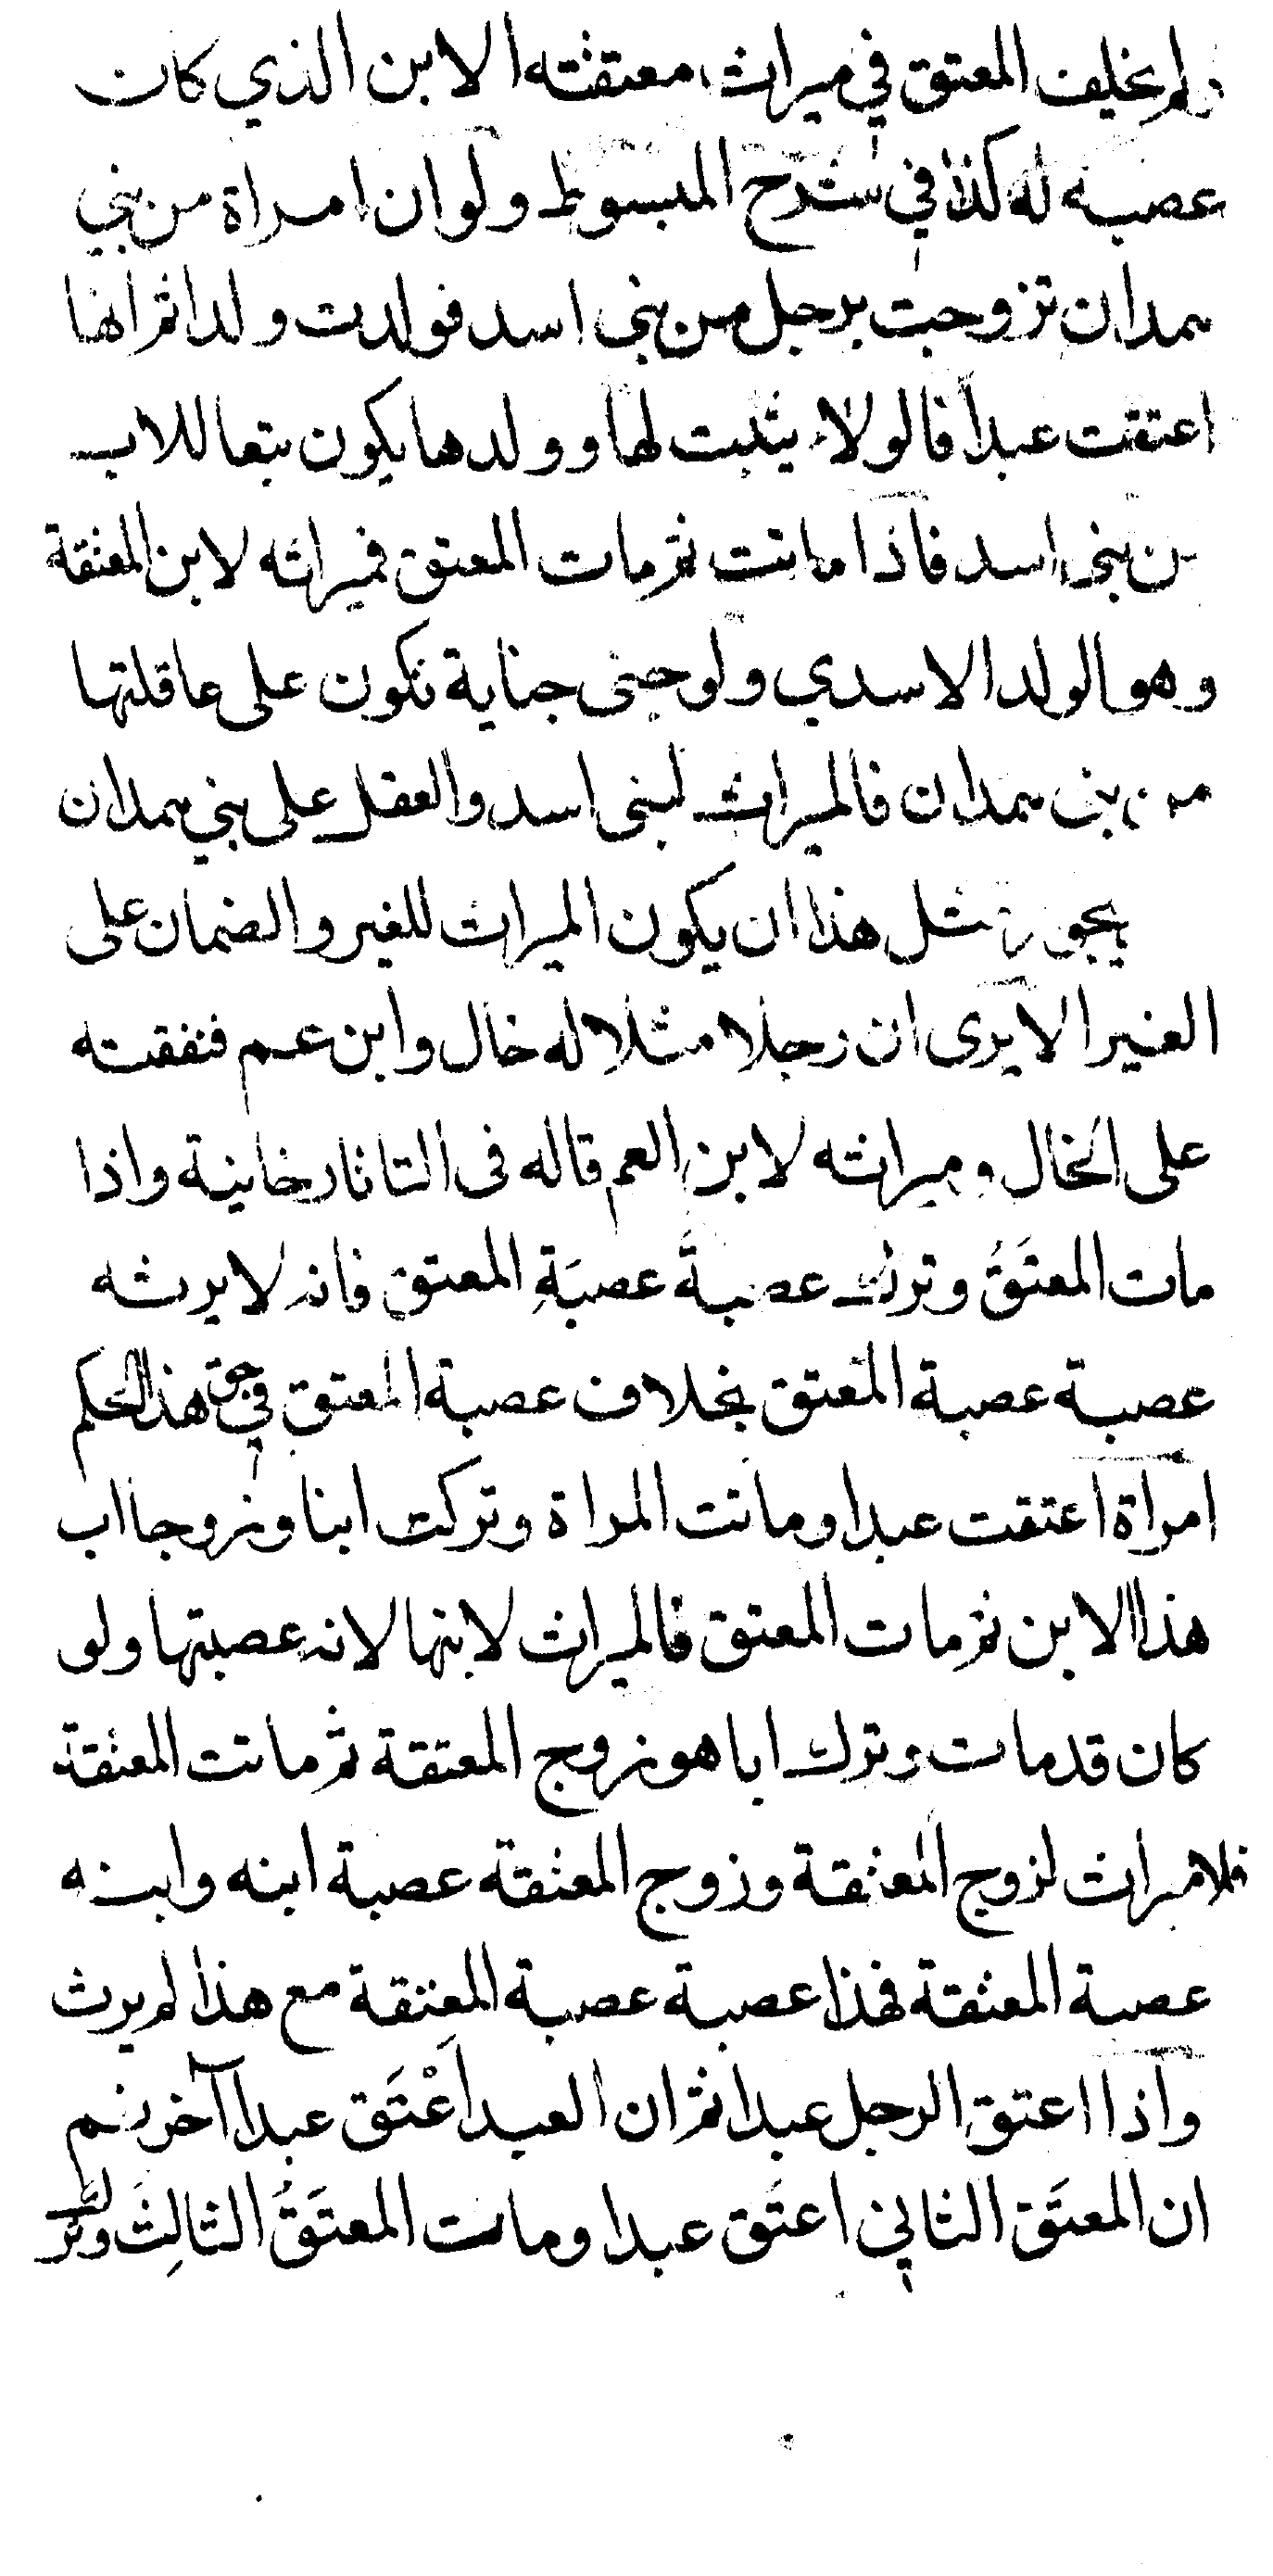 ولم يخلف المعتق في ميراث معتقته الا بن الذي كان
عصبه له كذا في شرح المبسوط ولو ان امراة من بني
همدان تزوجت برجل من بني اسد فولدت ولدا ثم انها
اعتقت عبدا فالولاء يثبت لها وولدها يكون تبعا للاب
من بنى اسد فاذا ماتت ثم مات المعتق فميراثه لابن المعتقة
وهو الولد الاسدي ولو جنى جناية تكون على عاقلتها
من بنى همدان فالميراث لبنى اسد والعقل على بني همدان
يجوز مثل هذا ان يكون الميراث للغير والضمان على
الغير الا يرى ان رجلا مثلا له خال وابن عم فنفقته
على الخال وميراثه لابن العم قاله فى التاتارخانية واذا
مات المعتَقُ وترك عصبةَ عصبَةِ المعتق فانه لا يرثه
عصبة عصبة المعتق بخلاف عصبة المعتق في حق هذا الحكم
امراة اعتقت عبدا وماتت المراة وتركت ابنا وزوجا اب
هذا الابن ثم مات المعتق فالميراث لابنها لانه عصبتها ولو
كان قد مات وترك ابا هو زوج المعتقة ثم ماتت المعتقة
فلا ميراث لزوج المعتقة وزوج المعتقة عصبة ابنه وابنه
عصبة المعتقة فهذا عصبة عصبة المعتِقة مع هذا لم يرث
واذا اعتق الرجل عبدا ثم ان العبد اَعْتَق عبدا آخر ثم
ان المعتَق الثاني اعتَق عبدا ومات المعتَقُ الثالِثَ وترك